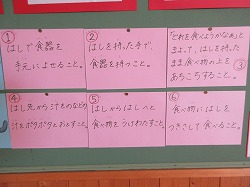 ①
はしで食器を
手元によせること。
②
はしを持った手で、
食器を持つこと。
「どれを食べようかなあ」と
まよって、はしを持った
まま食べ物の上を
あちこちすること。
③
④
はし先から汁ものなどの
汁をポタポタとおとすこと。
⑤
はしからはしへと
食べ物をうけわたすこと。
⑥
食べ物にはしを
つきさして食べること。